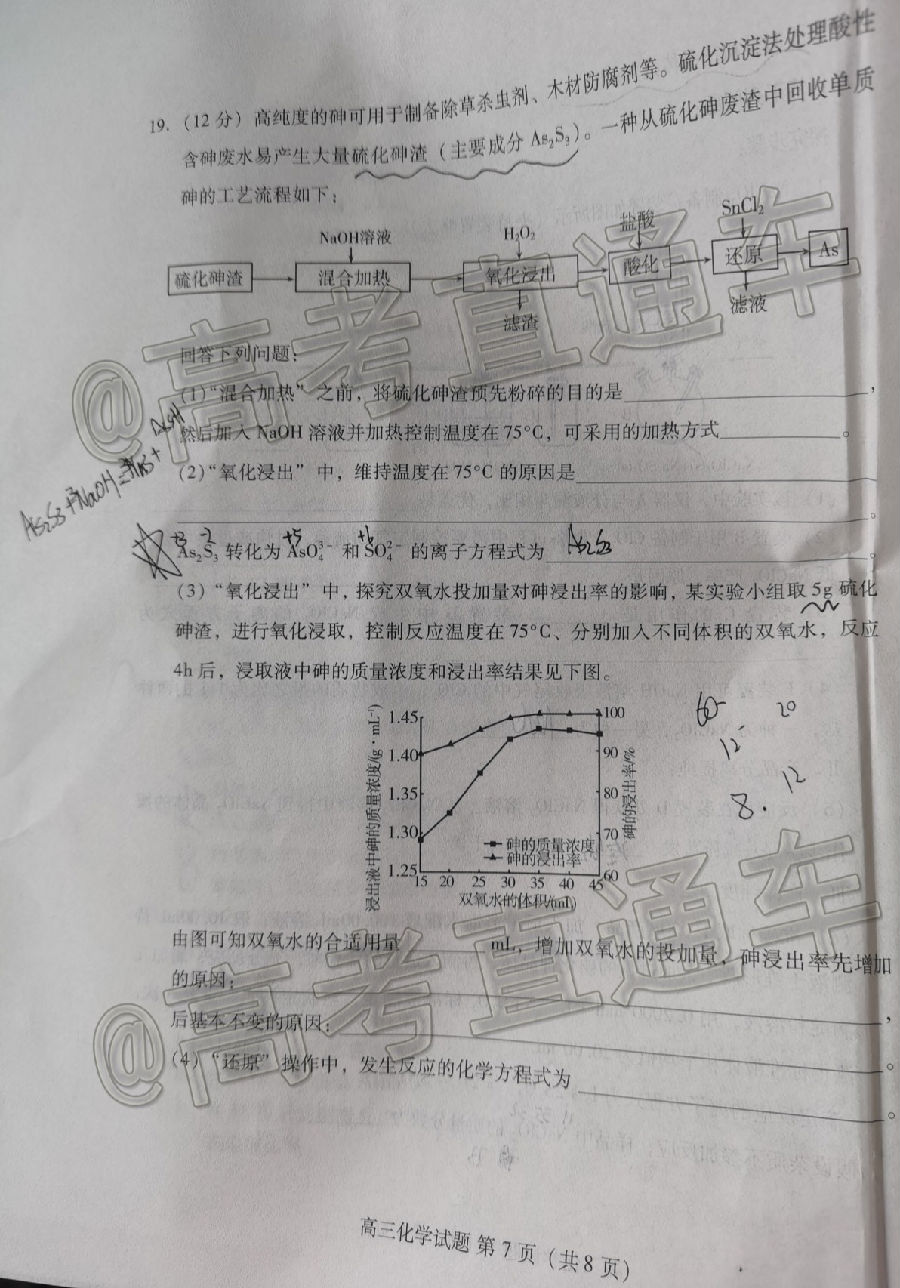 19. (12分) 高纯度的砷可用于制备除草杀虫剂、木材防腐剂等。硫化沉淀法处理酸性
含砷废水易产生大量硫化砷渣 (主要成分 As₂S₃)。一种从硫化砷废渣中回收单质
砷的工艺流程如下:
NaOH溶液 H₂O₂ 盐酸 SnCl₂
硫化砷渣 混合加热 氧化浸出 酸化 还原 As
滤渣 滤液
回答下列问题:
(1)“混合加热”之前, 将硫化砷渣预先粉碎的目的是,
然后加入 NaOH 溶液并加热控制温度在 75°C, 可采用的加热方式。
(2)“氧化浸出”中, 维持温度在 75°C 的原因是
。
+3 -2 +5 +6
As₂S₃ 转化为 AsO₄³⁻ 和 SO₄²⁻ 的离子方程式为 As₂S₃。
(3)“氧化浸出”中, 探究双氧水投加量对砷浸出率的影响, 某实验小组取 5g 硫化
砷渣, 进行氧化浸取, 控制反应温度在 75°C、分别加入不同体积的双氧水, 反应
4h 后, 浸取液中砷的质量浓度和浸出率结果见下图。
浸出液中砷的质量浓度/(g·mL⁻¹)
1.45
1.40
1.35
1.30
1.25
砷的质量浓度
砷的浸出率
15 20 25 30 35 40 45
双氧水的体积/(ml)
100
90
80
70
60
砷的浸出率/%
20
12
8. 12
由图可知双氧水的合适用量 mL, 增加双氧水的投加量, 砷浸出率先增加
的原因: ,
后基本不变的原因: 。
(4)“还原”操作中, 发生反应的化学方程式为
。
高三化学试题 第 7 页 (共 8 页)
@高考直通车
@高考直通车